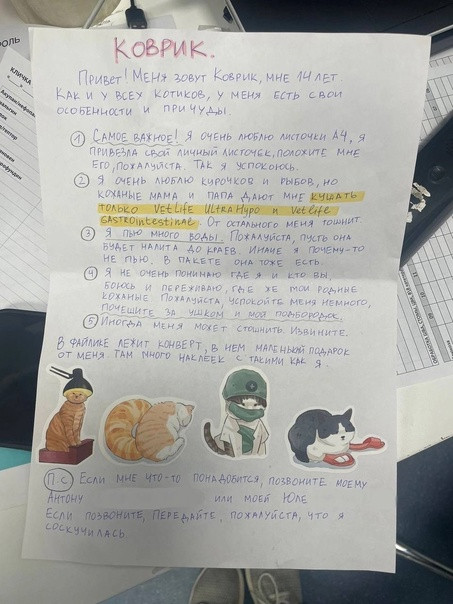 КОВРИК.
Привет! Меня зовут Коврик, мне 14 лет.
Как и у всех котиков, у меня есть свои
особенности и причуды.
① Самое важное! Я очень люблю листочки А4, я
привезла свой личный листочек, положите мне
его, пожалуйста. Так я успокоюсь.
② Я очень люблю курочков и рыбов, но
кожаные мама и папа дают мне кушать
только VetLife UltraHypo и VetLife
Gastrointestinal. От остального меня тошнит.
③ Я пью много воды. Пожалуйста, пусть она
будет налита до краев. Инане я почему-то
не пью. В пакете она тоже есть.
④ Я не очень понимаю где я и кто вы,
боюсь и переживаю, где же мои родные
кожаные. Пожалуйста, успокойте меня немного,
почешите за ушком и мой подбородок.
⑤ Иногда меня может стошнить. Извините.
В файлике лежит конверт, в нем маленький подарок
от меня. Там много наклеек с такими как я.
П.С Если мне что-то понадобится, позвоните моему
Антону или моей Юле
Если позвоните, передайте, пожалуйста, что я
соскучилась
КЛИЧКА